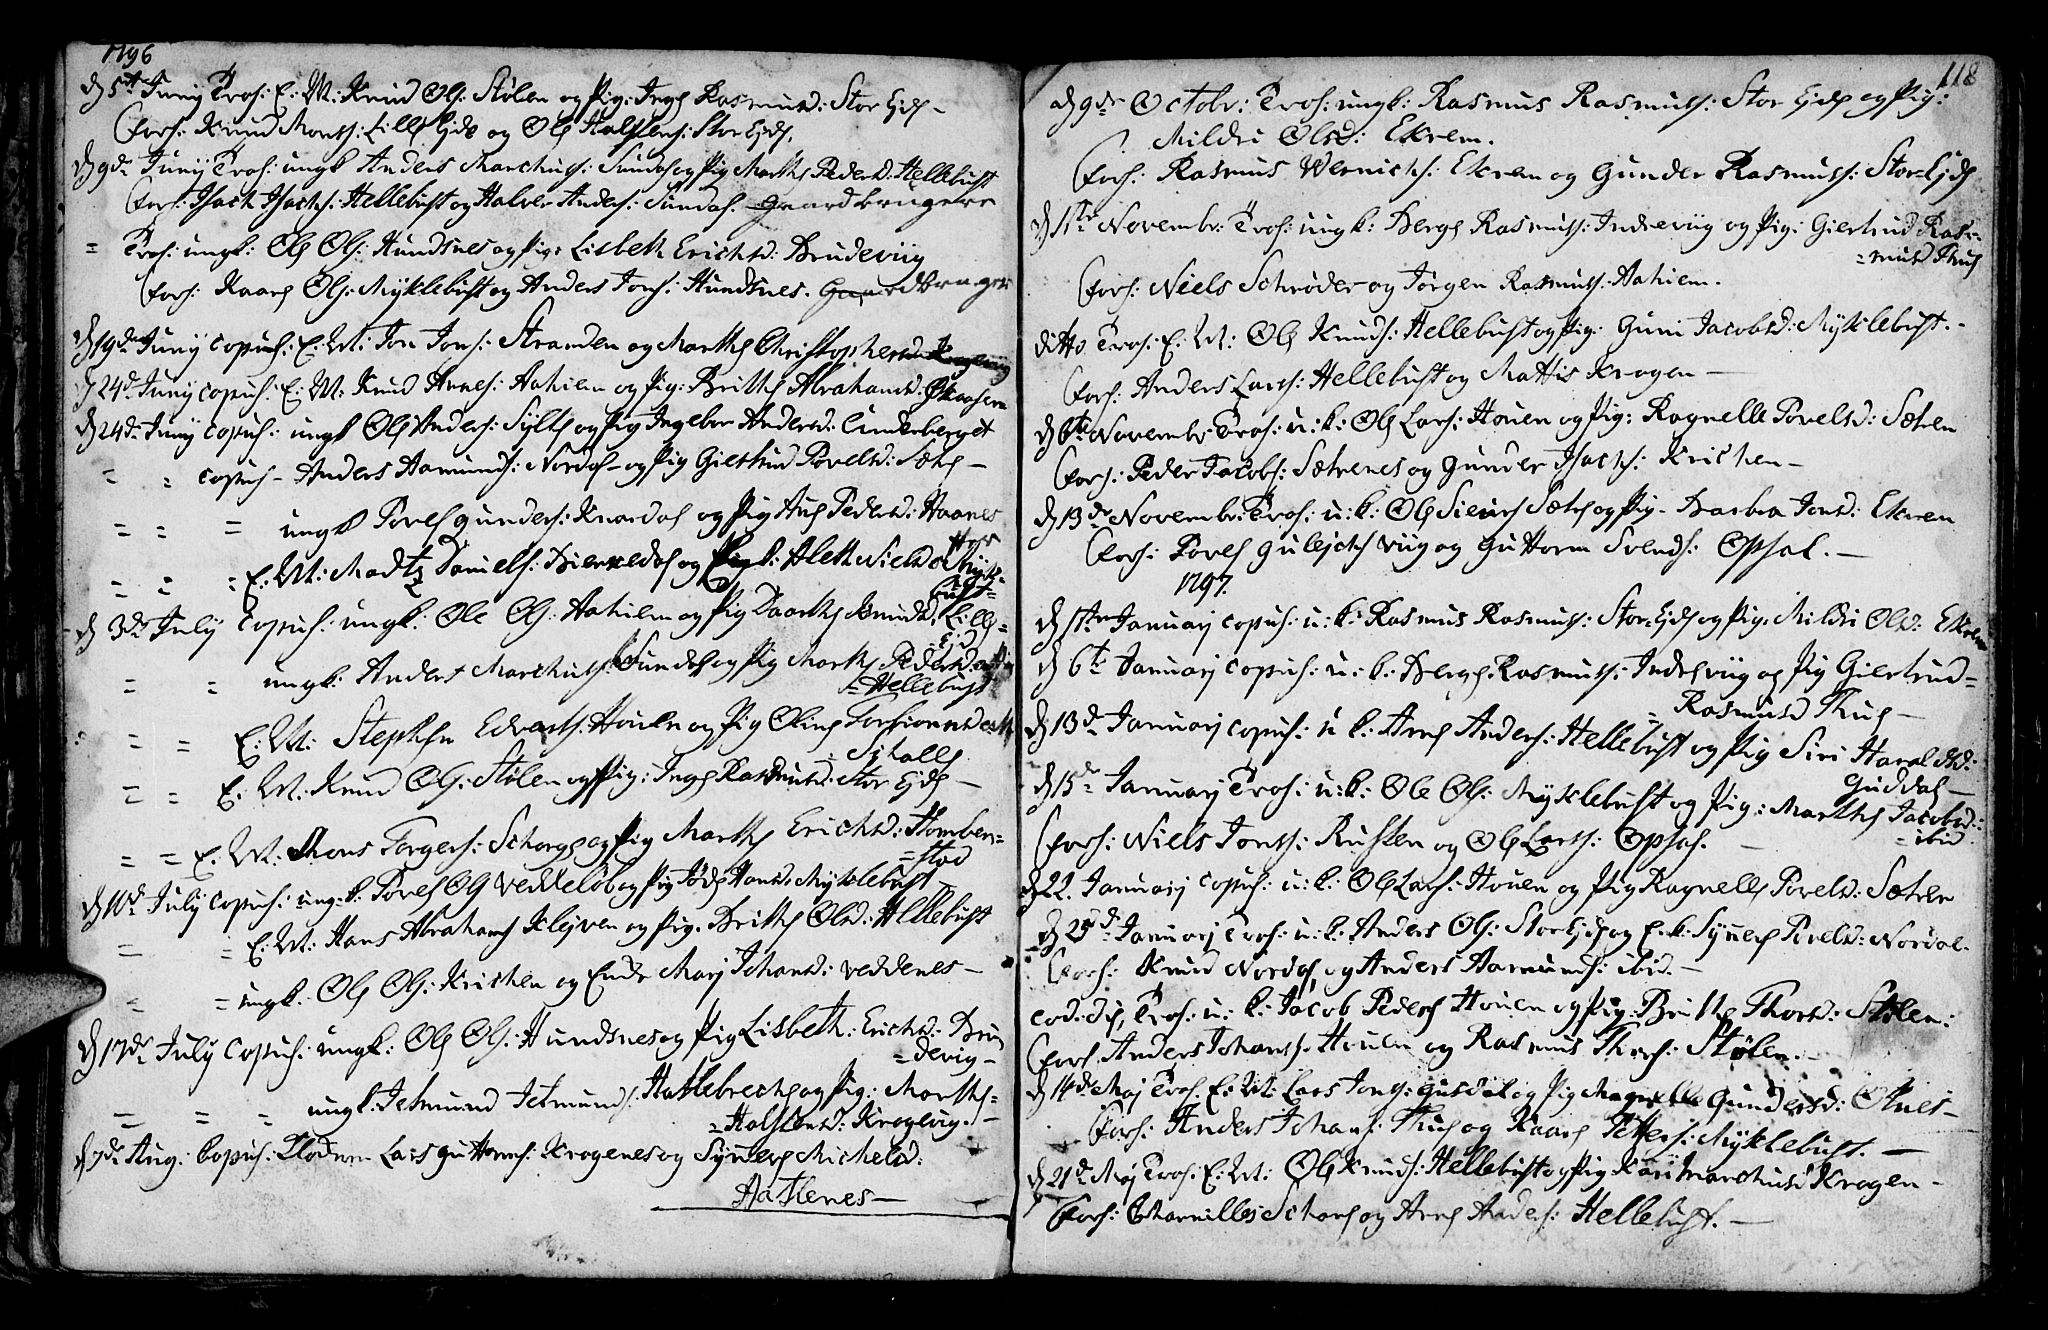 1796
d 5te Junij Trol: E: M: Knud Ols: Stölen og Pig: Inge Rasmusd: Stor Ejde -
Forl: Knud Monss: Lille Ejde og Ole Halstens: Stor Ejde,
d 9de Junij Trol: ungk Anders Marchuss: Sundal og Pig Marthe Pedersd: Hellebust
Forl: Isach Isachs: Hellebust og Halver Anders: Sundal. Gaardbrugere
= Trol: ungk: Ole Ols: Hundsnes og Pig: Lisbeth Erichsd: Brudeviig
Forl: Kaare Ols: Myklebust og Anders Jons: Hundsnes. Gaardbruger
d 19de Junij copul: E: M: Jon Jons: Stranden og Marthe Christophersd:
d 24de Junij copul: E: M: Knud Arnes: Aahiem og Pig: Britthe Abrahamsd:
d 24de Junij copul: ungk Ole Anders: Sylte og Pig Ingebor Andersd: Linderberget
" = copul - Anders Aamunds: Nordal og Pig Giertrud Povelsd: Sæth -
= = = ungk Povel Gunders: Knardal og Pig Ane Pedersd: Haanes
= = = E: M: Madtz Daniels: Bierkedal og Pig: Aleth Nielsd: Myk=
bust=
d 3de July copul: ungk: Ole Ols: Aahiem og Pig Daarthe Knudsd: Lille=
Eid
= = ungk: Anders Marchuss: Sundal og Pig Marthe Pedersd:
= Hellebust
= = E: M: Stephen Edvards: Houen og Pig Oline Torsionsd:
= = E: M: Knud Ols: Stölen og Pig: Inge Rasmusd: Stor Ejde -
= = E: M: Mons Torgers: Schorge og Pig Marthe Erichsd: Homben=
=stad
d 10de July copul: ungk: Povel Ols Veddelöb og Pig Jöde Hansd: Myklebust
= = E: M: Hans Abrahams Klejven og Pig. Britthe Olsd: Hellebust
= = ungk: Ole Ols: Krichen og Enke Marj Johansd: Veddenes -
d 17de July Copul: ungk: Ole Ols: Hundsnes og Pig Lisbeth: Erichsd: Bru
=devig -
= = = ungk: Jetmund Jetmunds: Hasslebrech og Pig: Marthe=
=Halstensd: Krogevig. -
d 7de Aug: Copul: Lars Guttorms: Krogenes og Synneve Michelsd:
Aastenes -
118
d 9de Octobr: Trol: ungk: Rasmus Rasmuss: Stor Ejde og Pig:
Mildri Olsd: Ekrem.
Forl: Rasmus Wernichs: Ekrem og Gunder Rasmuss: Stor=Ejde
d 1ste Novembr: Trol: ungk: Berge Rasmuss: Indreviig og Pig: Giertrud Ras=
=musd Thue
Forl: Niels Schröder og Jörgen Rasmuss: Aahiem.
ditto Trol: E: M: Ole Knuds: Hellebust og Pig: Guni Jacobsd: Myklebust. -
Forl: Anders Lars: Hellebust og Mattis Krogen -
d 6te Novembr Trol: u: k: Ole Lars: Houen og Pig: Ragnelle Povelsd: Sætren
Forl: Peder Jacobs: Sætrenes og Gunder Isachs: Krichen -
d 13de Novembr: Trol: u: k: Ole Siurs Sætre og Pig - Barbra Jonsd: Ekrem
Forl: Povel Gulejchs Viig og Guttorm Svends: Opsal. -
1797.
d 1ste Januarj copul: u: k: Rasmus Rasmuss: Stor=Ejde og Pig. Mildri Olsd: Ekrem
d 6te Januarj copul: u: k: Berge Rasmuss: Indreviig og Pig Giertrud=
= Rasmusd Thue -
d 13de Januarj copul: u k: Arne Anders: Hellebust og Pig Siri Haraldsd:
Guddal -
d 15de Januarj Trol: u: k: Ole Ols: Myklebust og Pig: Marthe Jacobsd:
= ibid
Forl: Niels Jonss: Rusten og Ole Larss: Opsal. -
d 22. Januarj copul: u: k: Ole Lars: Houen og Pig Ragnelle Povelsd: Sætren
d 25de Januarj Trol: u: k: Anders Ols: Stor Ejde og E: k: Synneve Povelsd: Nordal.
Forl: Knud Nordal og Anders Aamunds: ibid. -
eod: die Trol: u: k: Jacob Peders Houen og Pig: Britthe Thorsd: Stölen:
Forl. Anders Johans: Houen og Rasmus Thors: Stölen. -
d 14de Maj Trol: E: M: Lars Jons: Gusdal og Pig Magnelle Gundersd: Aanes -
Forl: Anders Johans: Thue og Kaare Petters: Myklebust. -
d 21de Maj Trol: E: M: Ole Knuds: Hellebust og Pig Kari Marchusd Krogen -
Forl: Schare og Arne Anders: Hellebust. -